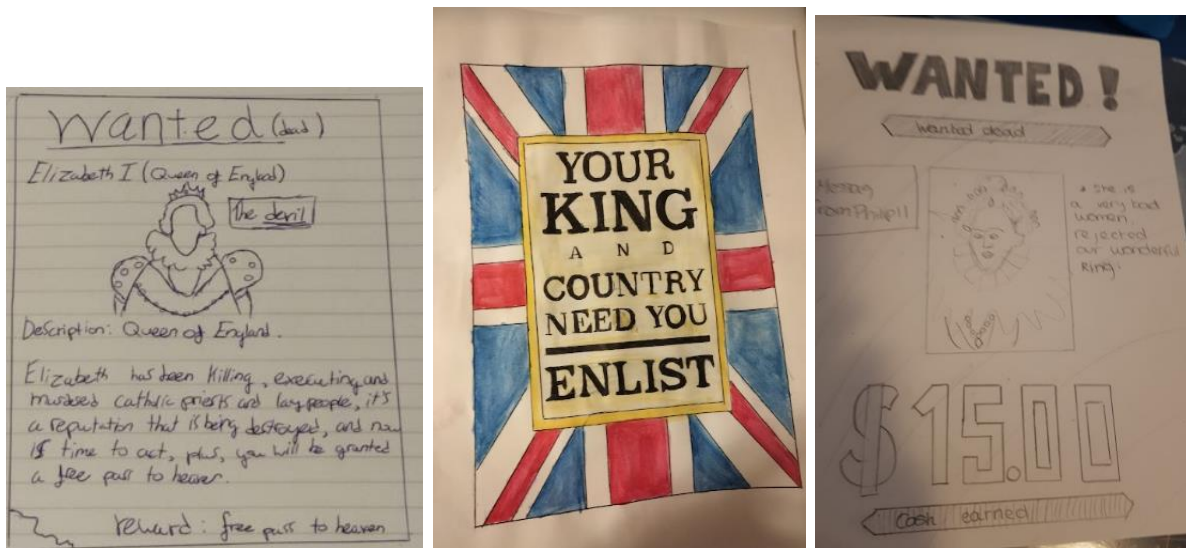 Wanted (dead)
Elizabeth I (Queen of England)
The devil
Description: Queen of England.
Elizabeth has been killing, executing and
murdered catholic priests and laypeople, it's
a reputation that is being destroyed, and now
is time to act, plus, you will be granted
a free pass to heaven.
reward: free pass to heaven
YOUR
KING
AND
COUNTRY
NEED YOU
ENLIST
WANTED!
wanted dead
Messag
from Philip II
She is
a very bad
women.
rejected
our wonderful
King.
$15.00
Cash earned